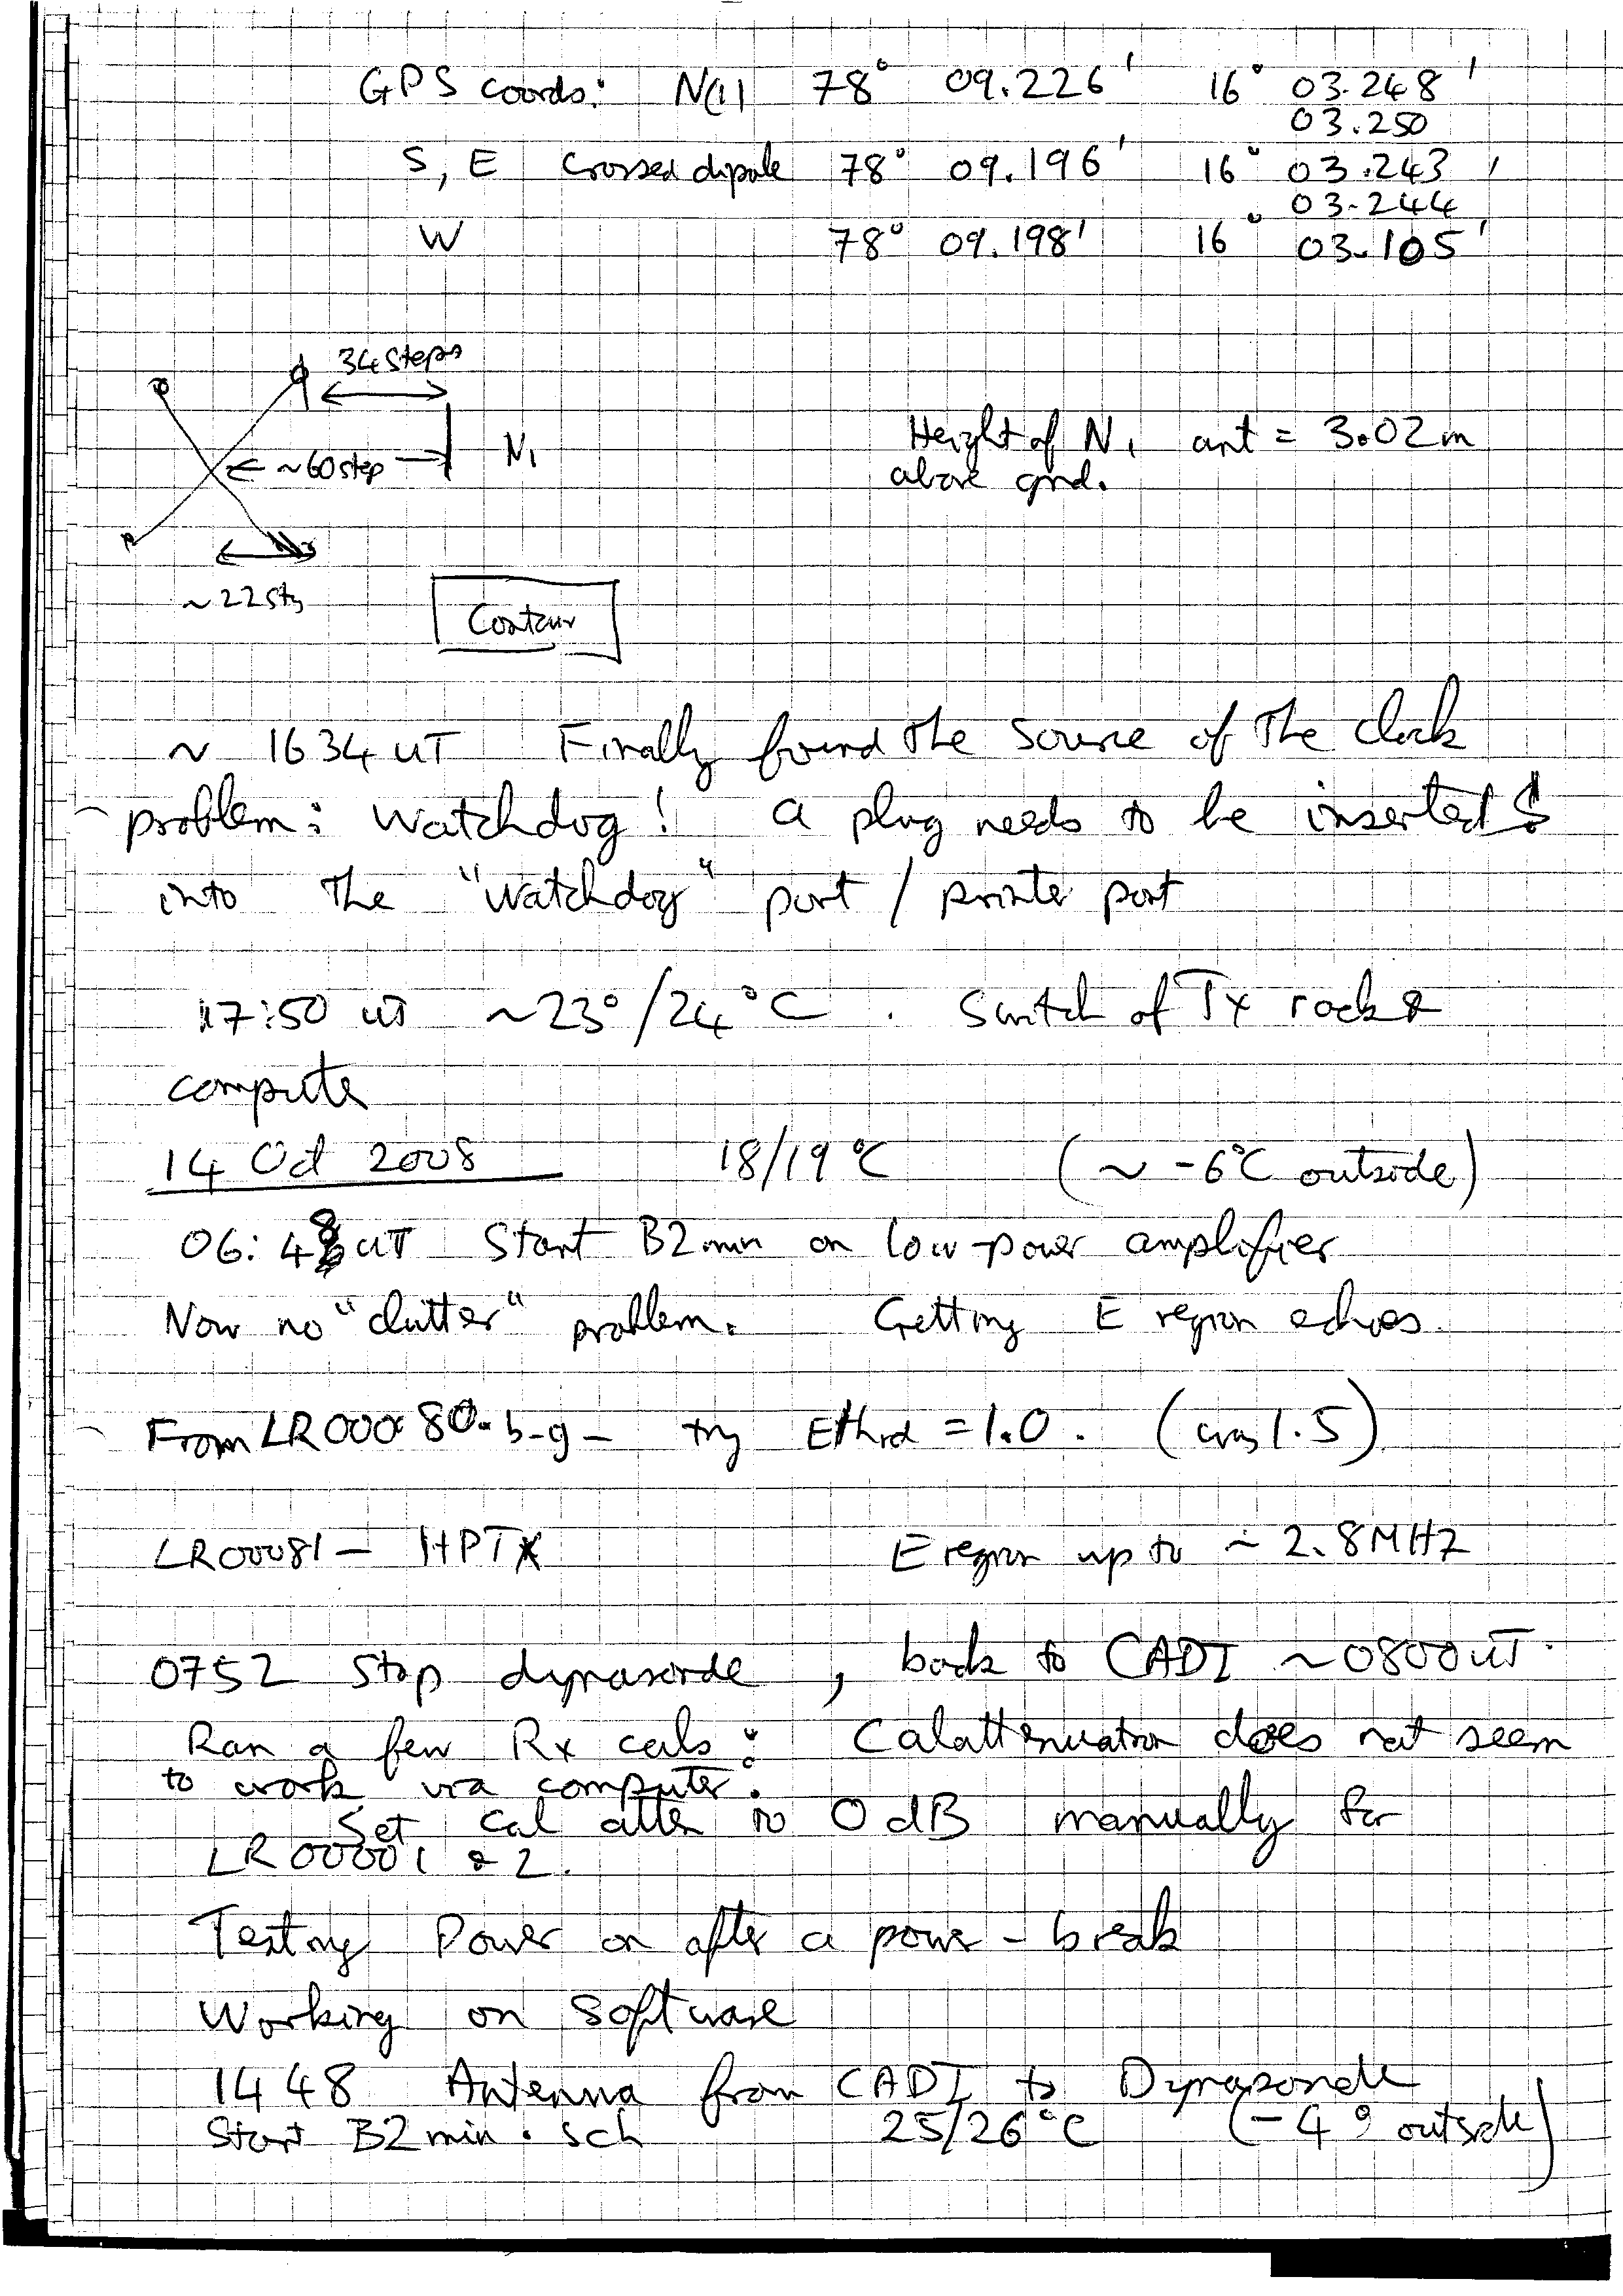 GPS coords: N(1) 78° 09.226' 16° 03.248'
03.250
S, E crossed dipole 78° 09.196' 16° 03.243'
03.244
W 78° 09.198' 16° 03.105'
34 steps
N1
~60 step
Height of N1 ant = 3.02m
above gnd.
~22 sts
~ 1634 UT Finally found the source of the clock
problem: Watchdog! a plug needs to be inserted
into the "watchdog" port / printer port
17:50 UT ~23°/24°C. Switch of Tx rack &
computer
14 Oct 2008 18/19°C (~ -6°C outside)
06:48 UT Start B2min on low-power amplifier
Now no "clutter" problem. Getting E region echoes.
From LR00080.b-g- try EThrd = 1.0. (was 1.5)
LR00081 - HPTX E region up to ~ 2.8MHz
0752 Stop dynasonde, back to CADI ~0800 UT.
Ran a few Rx cals: Cal attenuation does not seem
to work via computer.
Set cal atten to 0 dB manually for
LR00001 & 2.
Testing Power on after a power-break
Working on software
1448 Antenna from CADI to Dynasonde
Start B2min.sch 25/26°C (-4° outside)